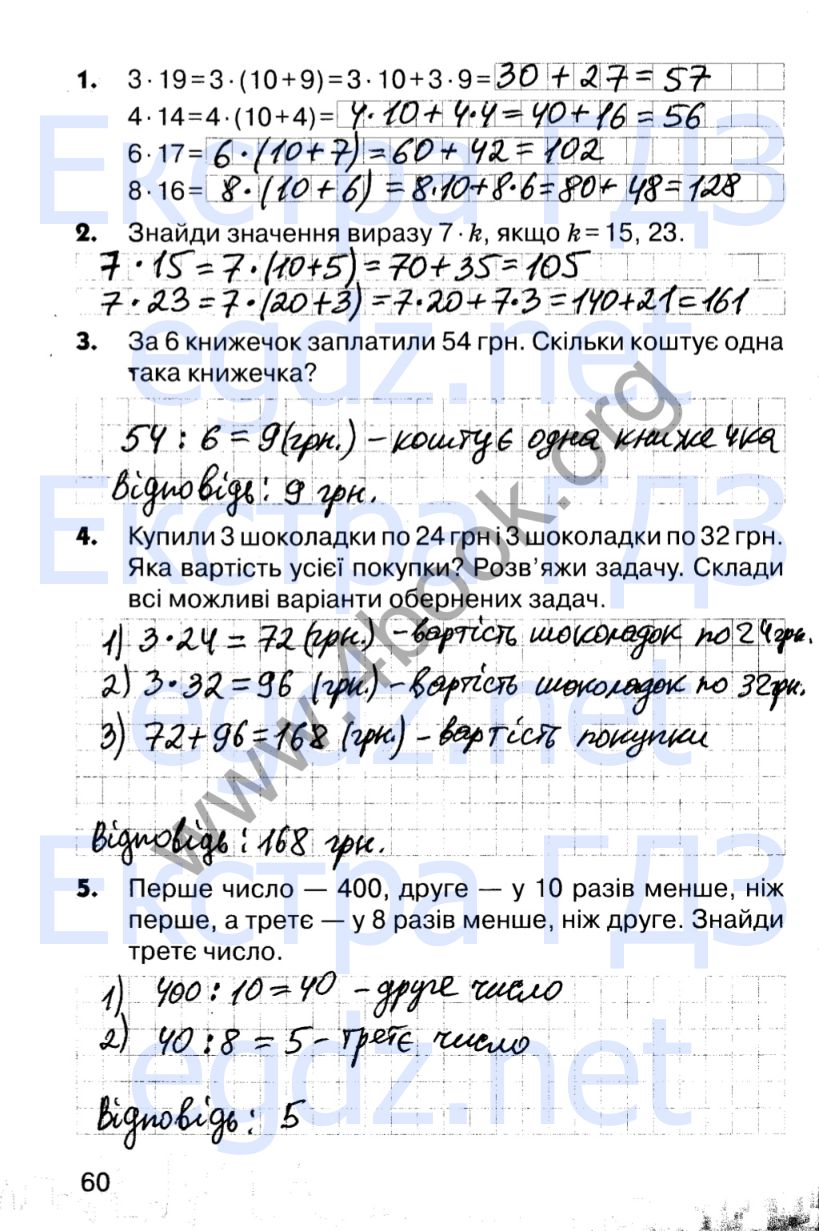 1. 3 · 19 = 3 · (10 + 9) = 3 · 10 + 3 · 9 = 30 + 27 = 57
4 · 14 = 4 · (10 + 4) = 4 · 10 + 4 · 4 = 40 + 16 = 56
6 · 17 = 6 · (10 + 7) = 60 + 42 = 102
8 · 16 = 8 · (10 + 6) = 8 · 10 + 8 · 6 = 80 + 48 = 128
2. Знайди значення виразу 7 · k, якщо k = 15, 23.
7 · 15 = 7 · (10 + 5) = 70 + 35 = 105
7 · 23 = 7 · (20 + 3) = 7 · 20 + 7 · 3 = 140 + 21 = 161
3. За 6 книжечок заплатили 54 грн. Скільки коштує одна
така книжечка?
54 : 6 = 9 (грн.) – коштує одна книжечка
Відповідь: 9 грн.
4. Купили 3 шоколадки по 24 грн і 3 шоколадки по 32 грн.
Яка вартість усієї покупки? Розв’яжи задачу. Склади
всі можливі варіанти обернених задач.
1) 3 · 24 = 72 (грн.) – вартість шоколадок по 24 грн.
2) 3 · 32 = 96 (грн.) – вартість шоколадок по 32 грн.
3) 72 + 96 = 168 (грн.) – вартість покупки
Відповідь: 168 грн.
5. Перше число — 400, друге — у 10 разів менше, ніж
перше, а третє — у 8 разів менше, ніж друге. Знайди
третє число.
1) 400 : 10 = 40 – друге число
2) 40 : 8 = 5 – третє число
Відповідь: 5
60
Екстра ГДЗ
egdz.net
Екстра ГДЗ
egdz.net
Екстра ГДЗ
egdz.net
www.4book.org